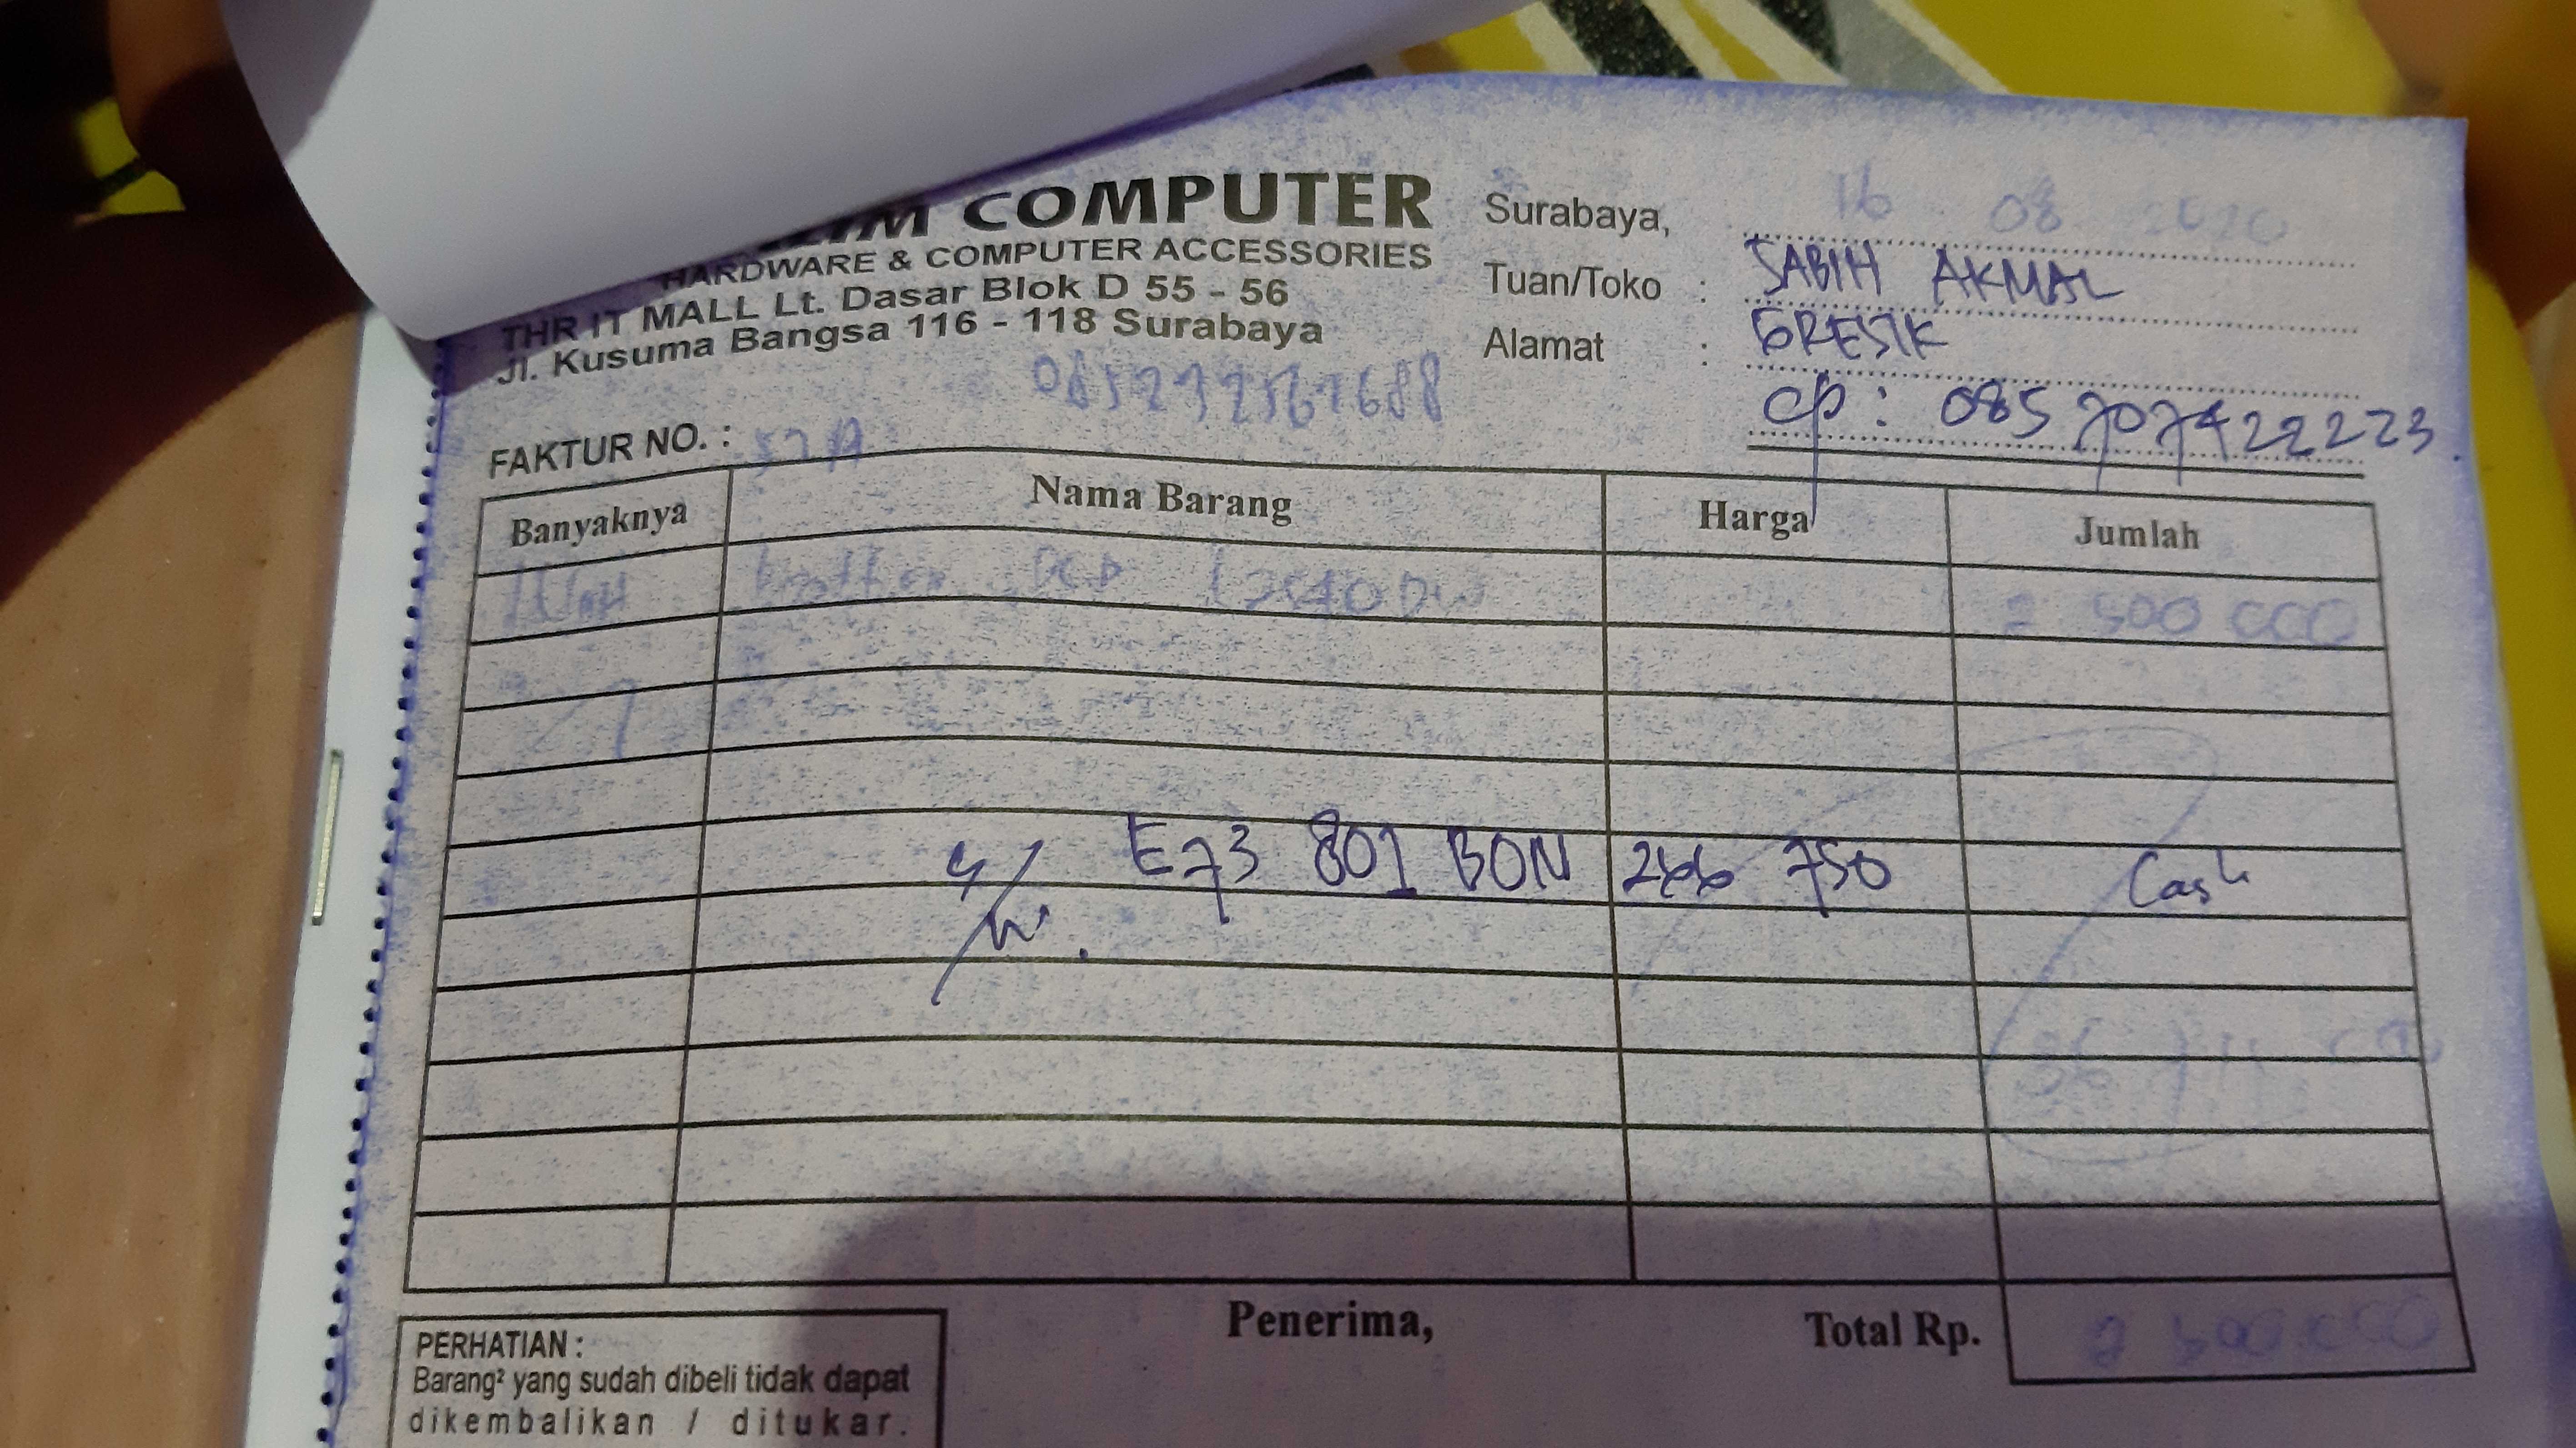 COMPUTER
HARDWARE & COMPUTER ACCESSORIES
THR IT MALL Lt. Dasar Blok D 55 - 56
Jl. Kusuma Bangsa 116 - 118 Surabaya
Surabaya, 16 08 2020
Tuan/Toko : SABIH AKMAL
Alamat : GRESIK
cp : 085 707422223
FAKTUR NO. :
Banyaknya Nama Barang Harga Jumlah
1 Unit Brother DCP L2540DW 2 500 000
E73 801 BON 266 750 Cash
Penerima,
Total Rp. 2 500.000
PERHATIAN :
Barang² yang sudah dibeli tidak dapat
dikembalikan / ditukar.